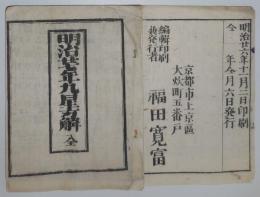 明治廿六年十二月二日印刷
仝 年仝月六日発行
編輯印刷
兼発行者
京都市上京區
大炊町五番戸
福田寛富
明治廿七年九星吉凶解 全